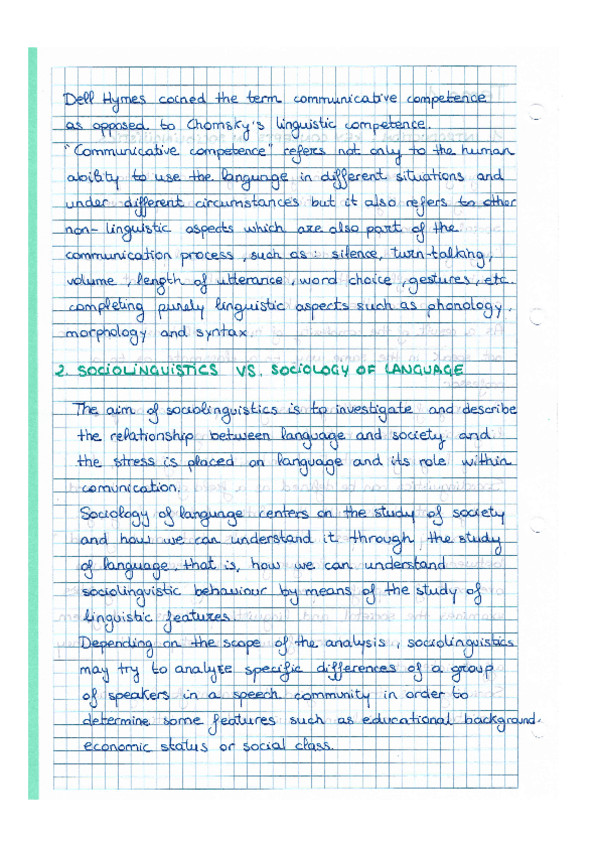 Dell Hymes coined the term communicative competence
as opposed to Chomsky's linguistic competence.
"Communicative competence" refers not only to the human
ability to use the language in different situations and
under different circumstances but it also refers to other
non-linguistic aspects which are also part of the
communication process, such as: silence, turn-talking,
volume, length of utterance, word choice, gestures, etc.
completing purely linguistic aspects such as phonology,
morphology and syntax.
2. SOCIOLINGUISTICS VS. SOCIOLOGY OF LANGUAGE
The aim of sociolinguistics is to investigate and describe
the relationship between language and society and
the stress is placed on language and its role within
comunication.
Sociology of language centers on the study of society
and how we can understand it through the study
of language, that is, how we can understand
sociolinguistic behaviour by means of the study of
linguistic features.
Depending on the scope of the analysis, sociolinguistics
may try to analyze specific differences of a group
of speakers in a speech community in order to
determine some features such as educational background,
economic status or social class.